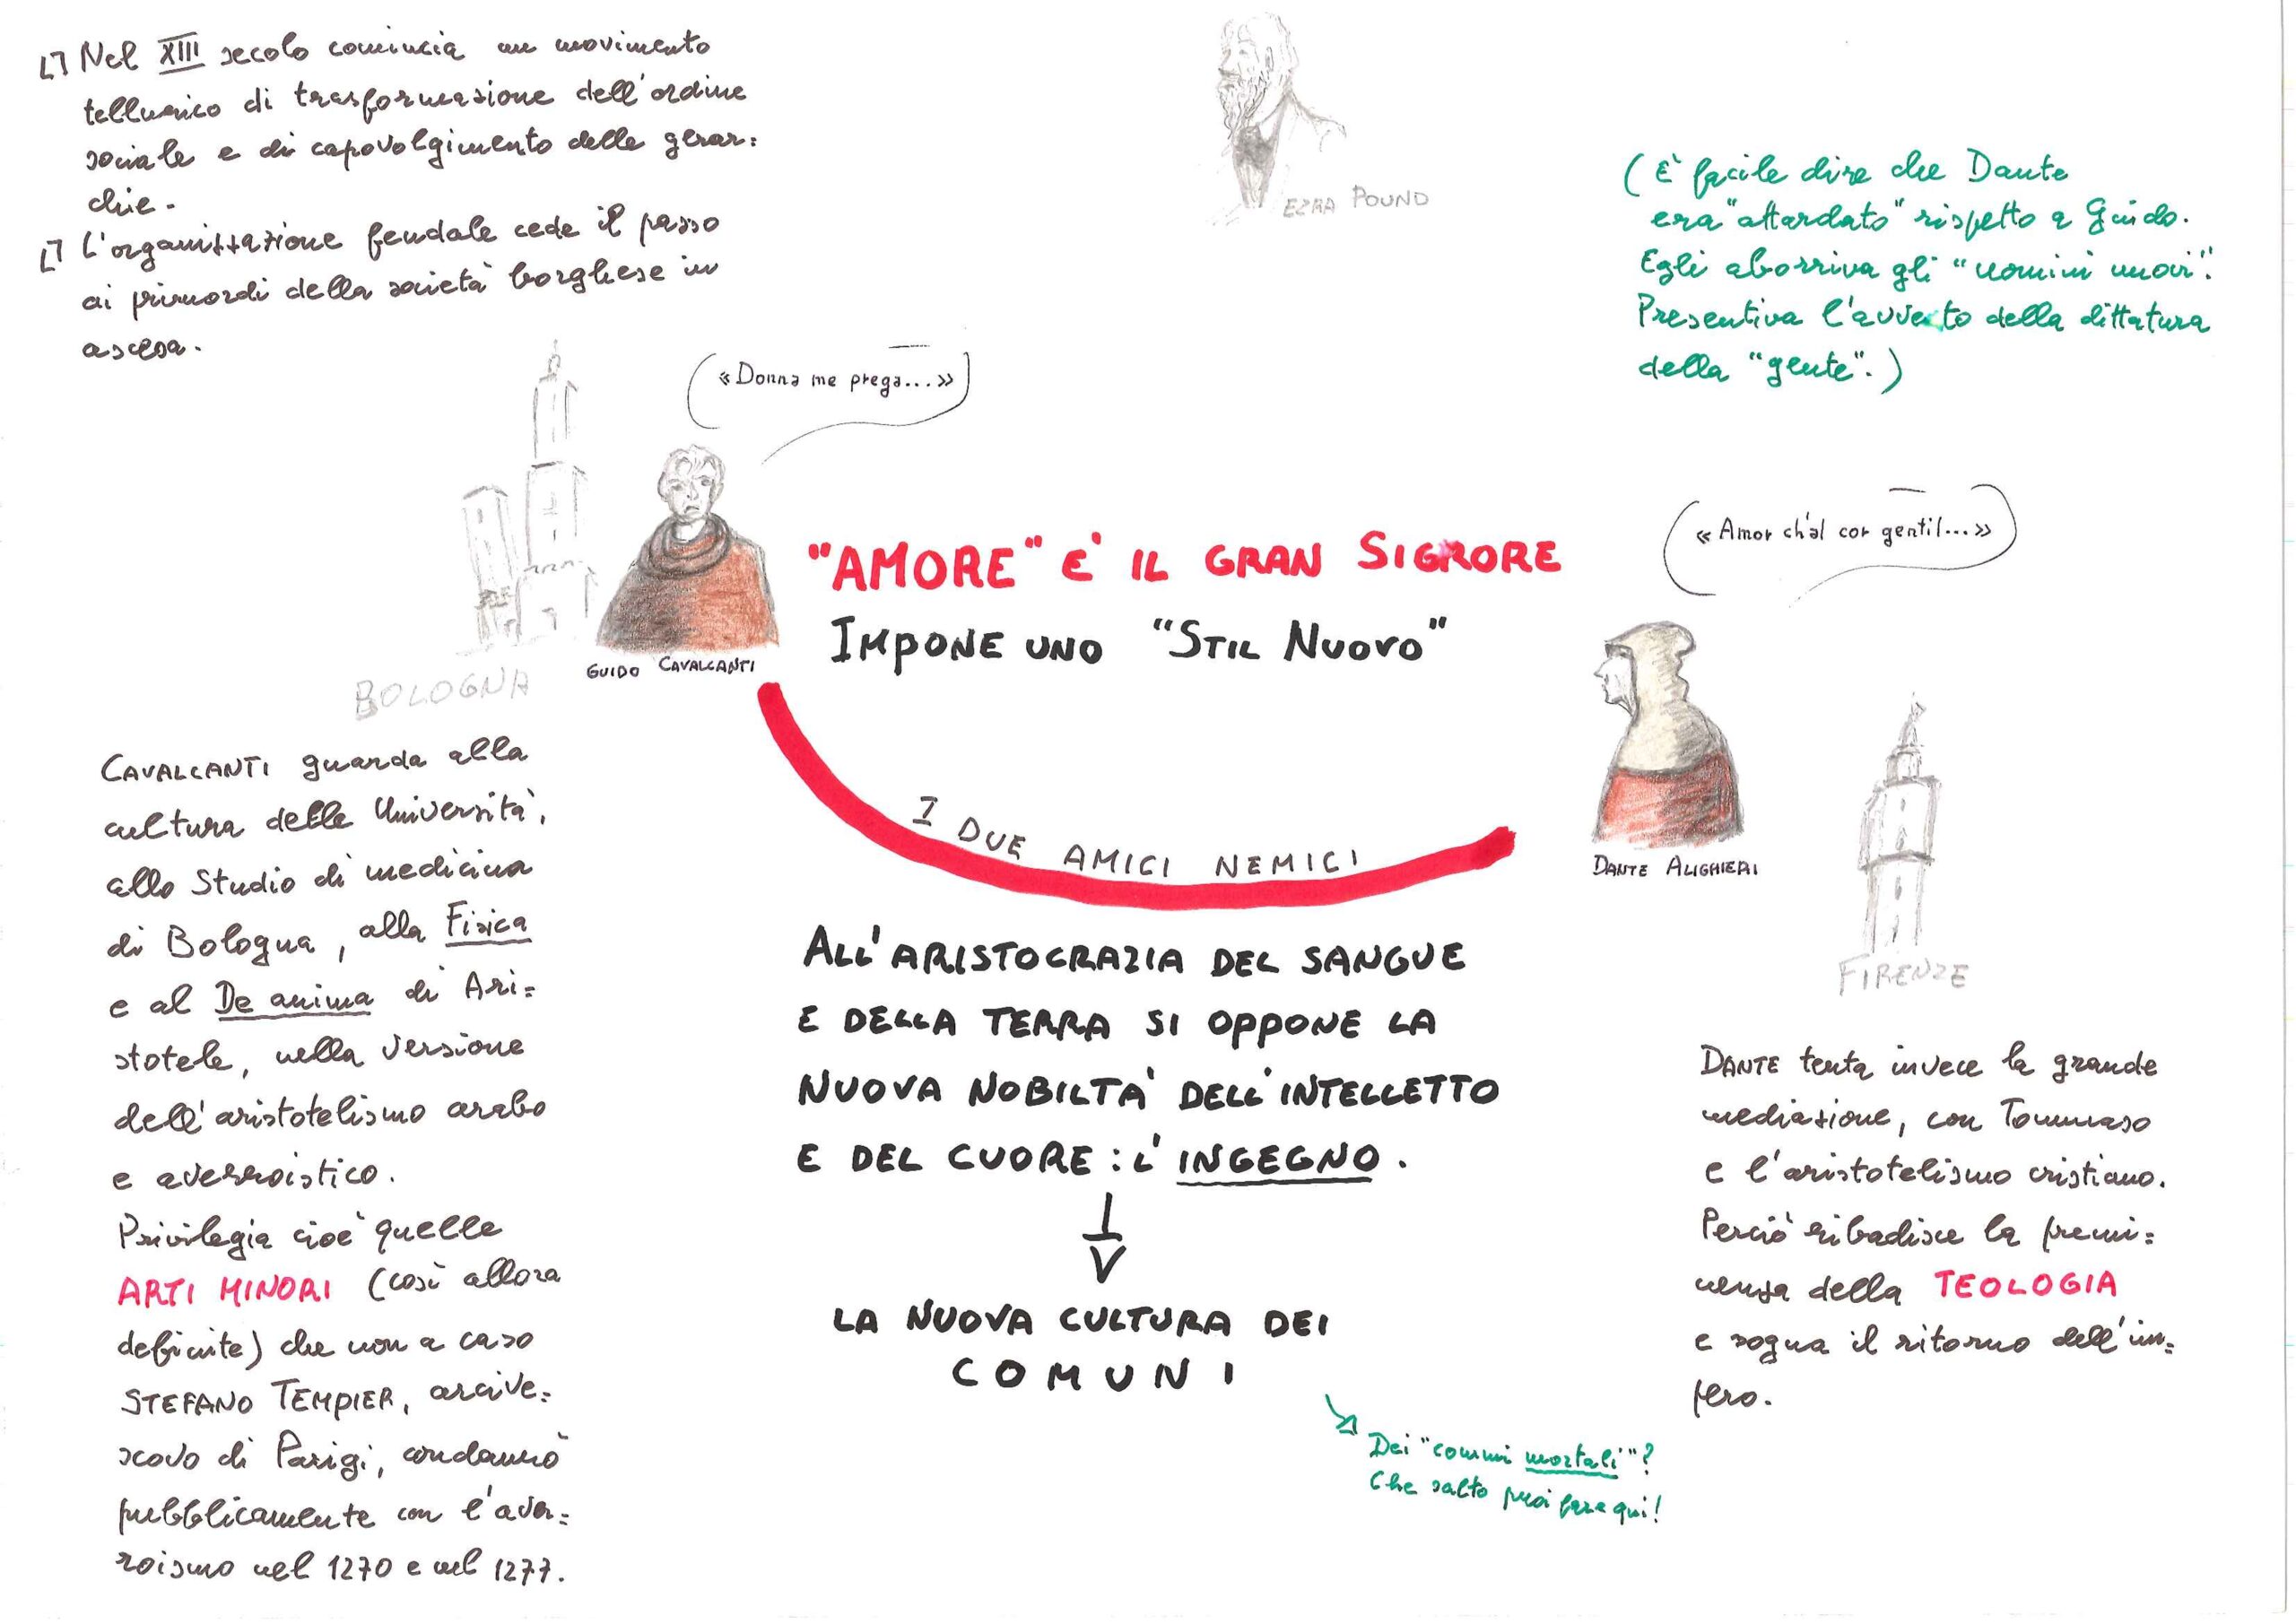 Nel XIII secolo comincia un movimento
tellurico di trasformazione dell'ordine
sociale e di capovolgimento delle gerar=
chie.
L'organizzazione feudale cede il passo
ai primordi della società borghese in
ascesa.
EZRA POUND
(È facile dire che Dante
era "attardato" rispetto a Guido.
Egli aborriva gli "uomini nuovi".
Presentiva l'avvento della dittatura
della "gente".)
«Donna me prega...»
«Amor ch'al cor gentil...»
"AMORE" E' IL GRAN SIGNORE
IMPONE UNO "STIL NUOVO"
BOLOGNA
GUIDO CAVALCANTI
I DUE AMICI NEMICI
DANTE ALIGHIERI
FIRENZE
CAVALCANTI guarda alla
cultura delle Università,
allo Studio di medicina
di Bologna, alla Fisica
e al De anima di Ari=
stotele, nella versione
dell'aristotelismo arabo
e averroistico.
Privilegia cioè quelle
ARTI MINORI (così allora
definite) che non a caso
STEFANO TEMPIER, arcive=
scovo di Parigi, condannò
pubblicamente con l'aver=
roismo nel 1270 e nel 1277.
ALL'ARISTOCRAZIA DEL SANGUE
E DELLA TERRA SI OPPONE LA
NUOVA NOBILTA' DELL'INTELLETTO
E DEL CUORE: L'INGEGNO.
LA NUOVA CULTURA DEI
COMUNI
Dei "comuni mortali"?
Che salto puoi fare qui!
DANTE tenta invece la grande
mediazione, con Tommaso
e l'aristotelismo cristiano.
Perciò ribadisce la premi=
nenza della TEOLOGIA
e sogna il ritorno dell'im=
pero.